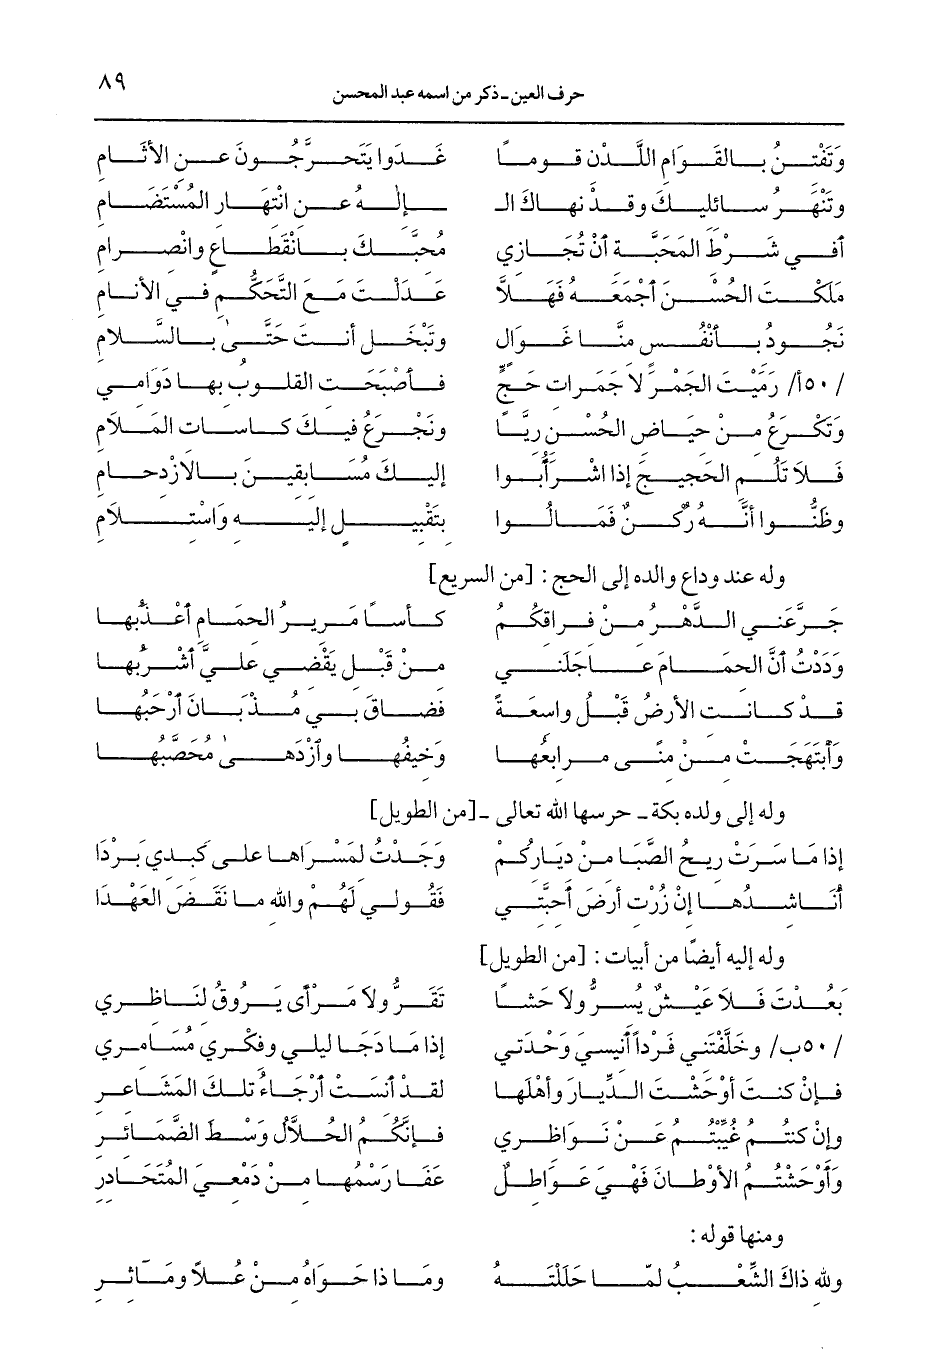 حرف العين ـ ذكر من اسمه عبد المحسن ٨٩
وَتَفْتِنُ بِالقَوَامِ اللَّدْنِ قوماً غَدَوا يَتَحرَّجُونَ عن الأَثَامِ
وتَنْهَرُ سائليكَ وقدْ نهاكَ الـ ـإلهُ عن انْتِهارِ المُسْتَضَامِ
أفي شَرْطِ المَحَبَّةِ أنْ تُجَازي مُحِبَّكَ بانْقطاعٍ وانْصِرامِ
مَلَكْتَ الحُسْنَ أجْمَعَهُ فَهَلاَّ عَدَلْتَ مَعَ التَّحَكُّمِ في الأنامِ
نَجُودُ بأنْفُسٍ منَّا غَوَالٍ وتَبْخَلُ أنتَ حَتَّى بالسَّلامِ
/ ٥٠أ/ رَمَيْتَ الجَمْرَ لا جَمَراتِ حَجٍّ فأصْبَحَتِ القلوبُ بها دَوَامي
وَتَكْرَعُ من حِيَاضِ الحُسْنِ رِيَّاً ونَجْرَعُ فيكَ كاساتِ المَلامِ
فلا تَلُمِ الحَجيجَ إذا اشْرَأَبُّوا إليكَ مُسَابقينَ بالازْدحامِ
وظَنُّوا أنَّهُ رُكنٌ فمَالُوا بتَقْبيلٍ إليهِ وَاسْتِلامِ
وله عند وداع والده إلى الحج: [من السريع]
جَرَّعَني الدَّهْرُ مِنْ فراقكُمُ كأساً مَريرُ الحِمَامِ أعْذَبُها
وَدَدْتُ أنَّ الحِمَامَ عاجَلَني مِنْ قَبْلِ يَقْضي عليَّ أشْرَبُها
قدْ كانتِ الأرضُ قَبْلُ واسعَةً فضاقَ بي مُذْ بَانَ أرْحَبُها
وَأبْتَهَجَتْ مِنْ مِنًى مرابعُها وَخَيفُها وأزْدهى مُحَصَّبُها
وله إلى ولده بمكة ـ حرسها الله تعالى ـ [من الطويل]
إذا مَا سَرَتْ ريحُ الصَّبَا منْ ديَاركُمْ وَجَدْتُ لمَسْرَاها على كَبدي بَرْدَا
أُنَاشدُها إنْ زُرْتِ أرضَ أحبَّتي فَقُولي لَهُمْ والله ما نَقَضَ العَهْدَا
وله إليه أيضاً من أبيات: [من الطويل]
بَعُدْتَ فَلا عَيْشٌ يَسُرُّ ولا حَشًا تَقَرُّ ولا مَرْأى يَرُوقُ لنَاظري
/ ٥٠ب/ وخَلَّفْتَني فَرْداً أنيسي وَحْدَتي إذا مَا دَجَا ليلي وفكْري مُسَامري
فإنْ كنتَ أوْحَشْتَ الدِّيارَ وأهْلَها لقدْ أنسَتْ أرْجَاءُ تلكَ المَشَاعرِ
وإن كنتُمُ غُيِّبْتُمُ عَنْ نَواظري فإنَّكُمُ الحُلاَّلُ وَسْطَ الضَّمَائرِ
وَأوْحَشْتُمُ الأوْطانَ فَهْيَ عَوَاطلٌ عَفَا رَسْمُها منْ دَمْعيَ المُتَحَادرِ
ومنها قوله:
ولله ذاكَ الشِّعْبُ لمَّا حَلَلْتَهُ ومَاذا حَواهُ مِنْ عُلاً ومَآثرِ